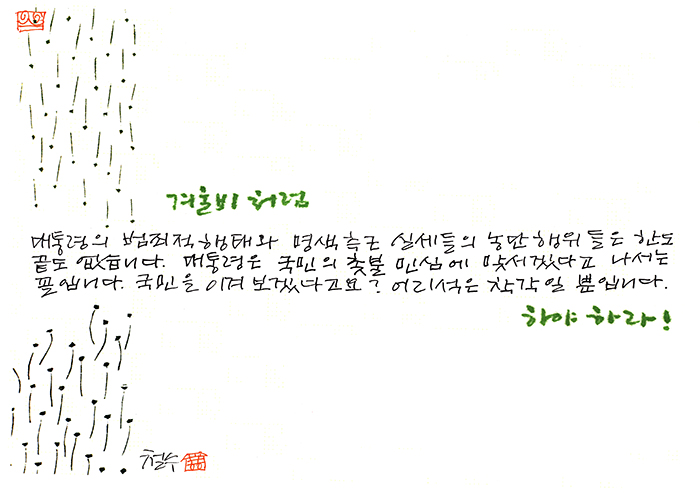 겨울비 처럼
대통령의 범죄적행태와 명색측근 실세들의 농단행위들은 한도
끝도 없습니다. 대통령은 국민의 촛불 민심에 맞서겠다고 나서는
꼴입니다. 국민을 이겨 보겠다고요? 어리석은 착각일 뿐입니다.
하야 하라!
철수